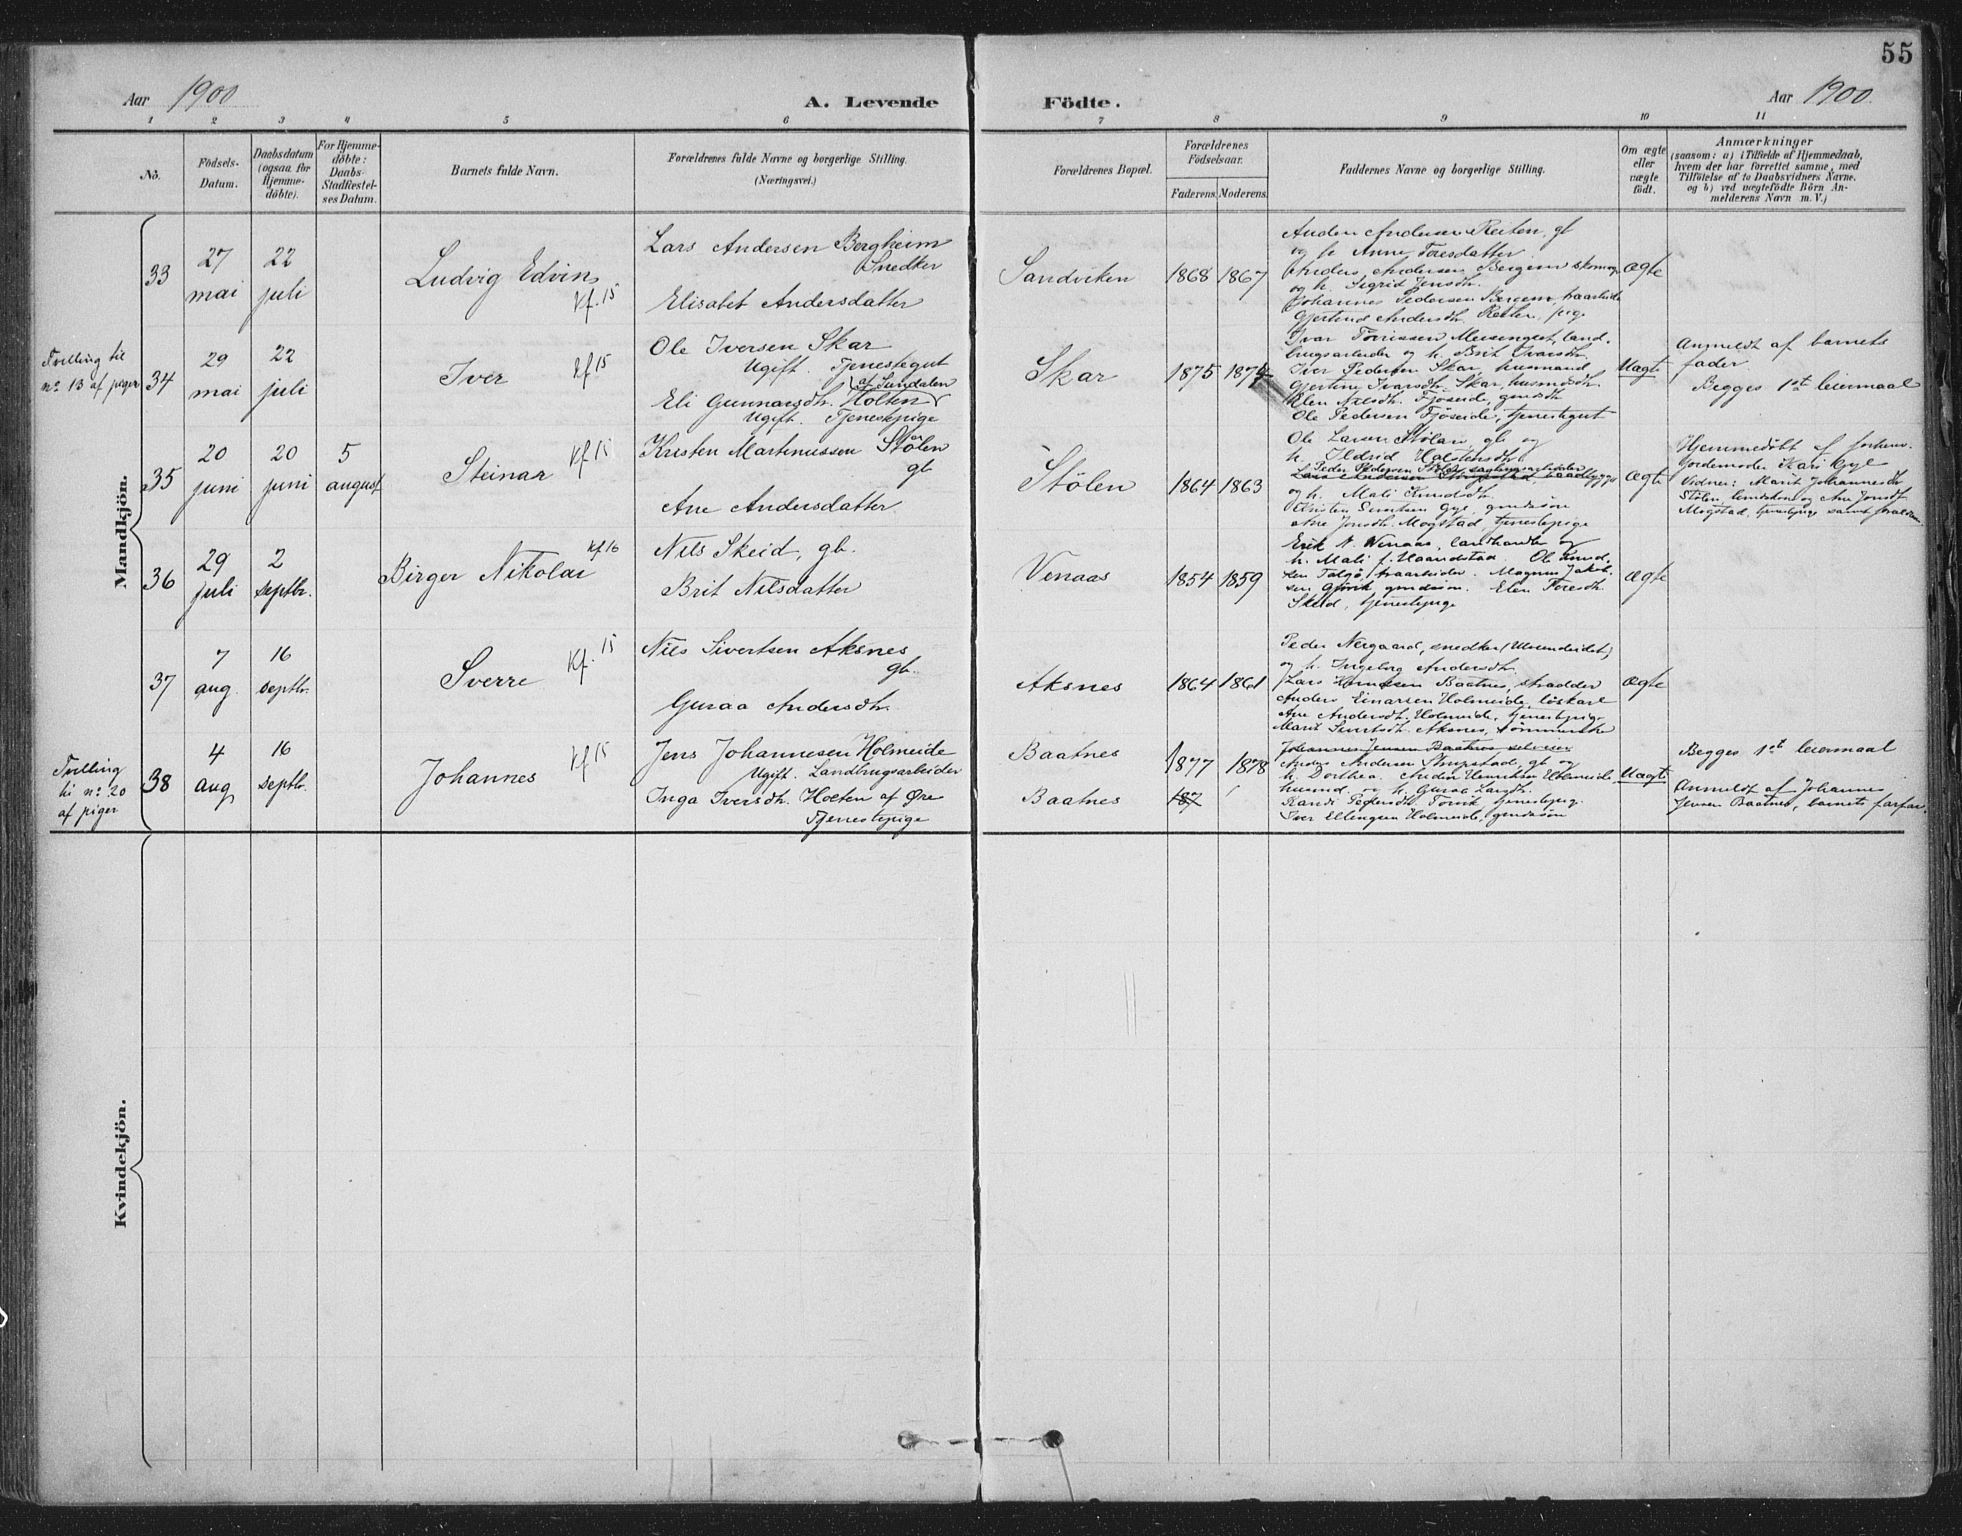 55
Aar 1900
A. Levende Födte.
Aar 1900.
1 2 3 4 5 6 7 8 9 10 11
No.
Födsels-
Datum.
Daabsdatum
(ogsaa for
Hjemme-
döbte).
For Hjemme-
döbte:
Daabs-
Stadfæstel-
ses Datum.
Barnets fulde Navn.
Forældrenes fulde Navne og borgerlige Stilling.
(Næringsvei.)
Forældrenes Bopæl.
Forældrenes
Födselsaar.
Faderens. Moderens.
Faddernes Navne og borgerlige Stilling.
Om ægte
eller
uægte
födt.
Anmærkninger
(saasom: a) i Tilfælde af Hjemmedaab,
hvem der har forrettet samme, med
Tilföielse af to Daabsvidners Navne.
og b) ved uægtefödte Börn An-
melderens Navn m. V.)
Mandkjön.
33
27
mai
22
juli
Ludvig Edvin
Kf. 15
Lars Andersen Bergheim
Snedker
Elisabet Andersdatter
Sandviken
1868 1867
Anders Andersen Reiten, gb
og h. Anne Toresdatter
Anders Andersen Bergem
og h. Sigrid Jensdtr.
Johannes Pedersen Bergem,
Gjertrud Andersdtr. Reiten, pige
ægte
Tvilling til
nº 13 af piger
34
29
mai
22
juli
Iver
Kf 15
Ole Iversen Skar
Ugift. Tjenestegut
(af Sundalen
Eli Gunnarsdtr. Holten
Ugift. Tjenestepige
Skar
1875 1874
Ivar Torrissen Meisingset, land-
brugsarbeider og h. Brit Ivarsdtr.
Iver Pedersen Skar, husmand
Gjertine Ivarsdtr. Skar,
Elen Nilsdtr. Fjøseide,
Ole Pedersen Fjøseide, tjenestegut
Uægte
Anmeldt af barnets
fader
Begges 1st leiermaal
35
20
juni
20
juni
5
august
Steinar
Kf 15
Kristen Martinussen Stölen
gb
Ane Andersdatter
Stölen
1864 1863
Ole Larsen Stölan, gb og
h. Ildrid Halstensdtr.
Peder Pedersen
Lars Andersen
og h. Mali Knudsdtr.
Kristen Gyl, gmdssön
Ane Jonsdtr. Mogstad, tjenestepige
ægte
Hjemmedöbt af
Jordemoder Kari Gyl
Vidner: Marit Johannesdtr
Stölen, og Ane Jonsdtr
Mogstad, tjenestepige samt
36
29
juli
2
septbr.
Birger Nikolai
Kf. 16
Nils Skeid, gb.
Brit Nilsdatter
Venaas
1854 1859
Erik N. Venaas, landhandler og
h. Mali f. Haandstad Ole Knud-
sen Talgö, Magnus Jakob-
sen Gjörvik, gmdssön. Elen Toresdtr.
Skeid, tjenestepige
ægte
37
7
aug.
16
septbr.
Sverre
Kf. 15
Nils Sivertsen Aksnes
gb.
Guraa Andersdtr.
Aksnes
1864 1861
Peder Nergaard, snedker
og h. Ingeborg Andersdtr.
Lars Baatnes, skrædder
Anders Einarsen Holmeide, löskarl
Ane Andersdtr. Holmeide, tjenestepige
Marit Sivertsdtr. Aksnes,
ægte
Tvilling
til nº 20
af piger
38
4
aug
16
septbr.
Johannes
Kf 15
Jens Johannesen Holmeide
Ugift. Landbrugsarbeider
Inga Iversdtr. Holten af Öre
Tjenestepige
Baatnes
Baatnes
1877 1878
187
Johannes Jensen Baatnes selveier
Anders Andersen gb og
h. Dorthea. Anders Henriksen Holmeide
husmd. og h. Guraa Larsdtr.
Randi Pedersdtr. Torvik, tjenestepig.
Iver Ellingsen Holmeide, gmdssön
Uægte
Begges 1st leiermaal
Anmeldt af Johannes
Jensen Baatnes, barnets farfar.
Kvindekjön.